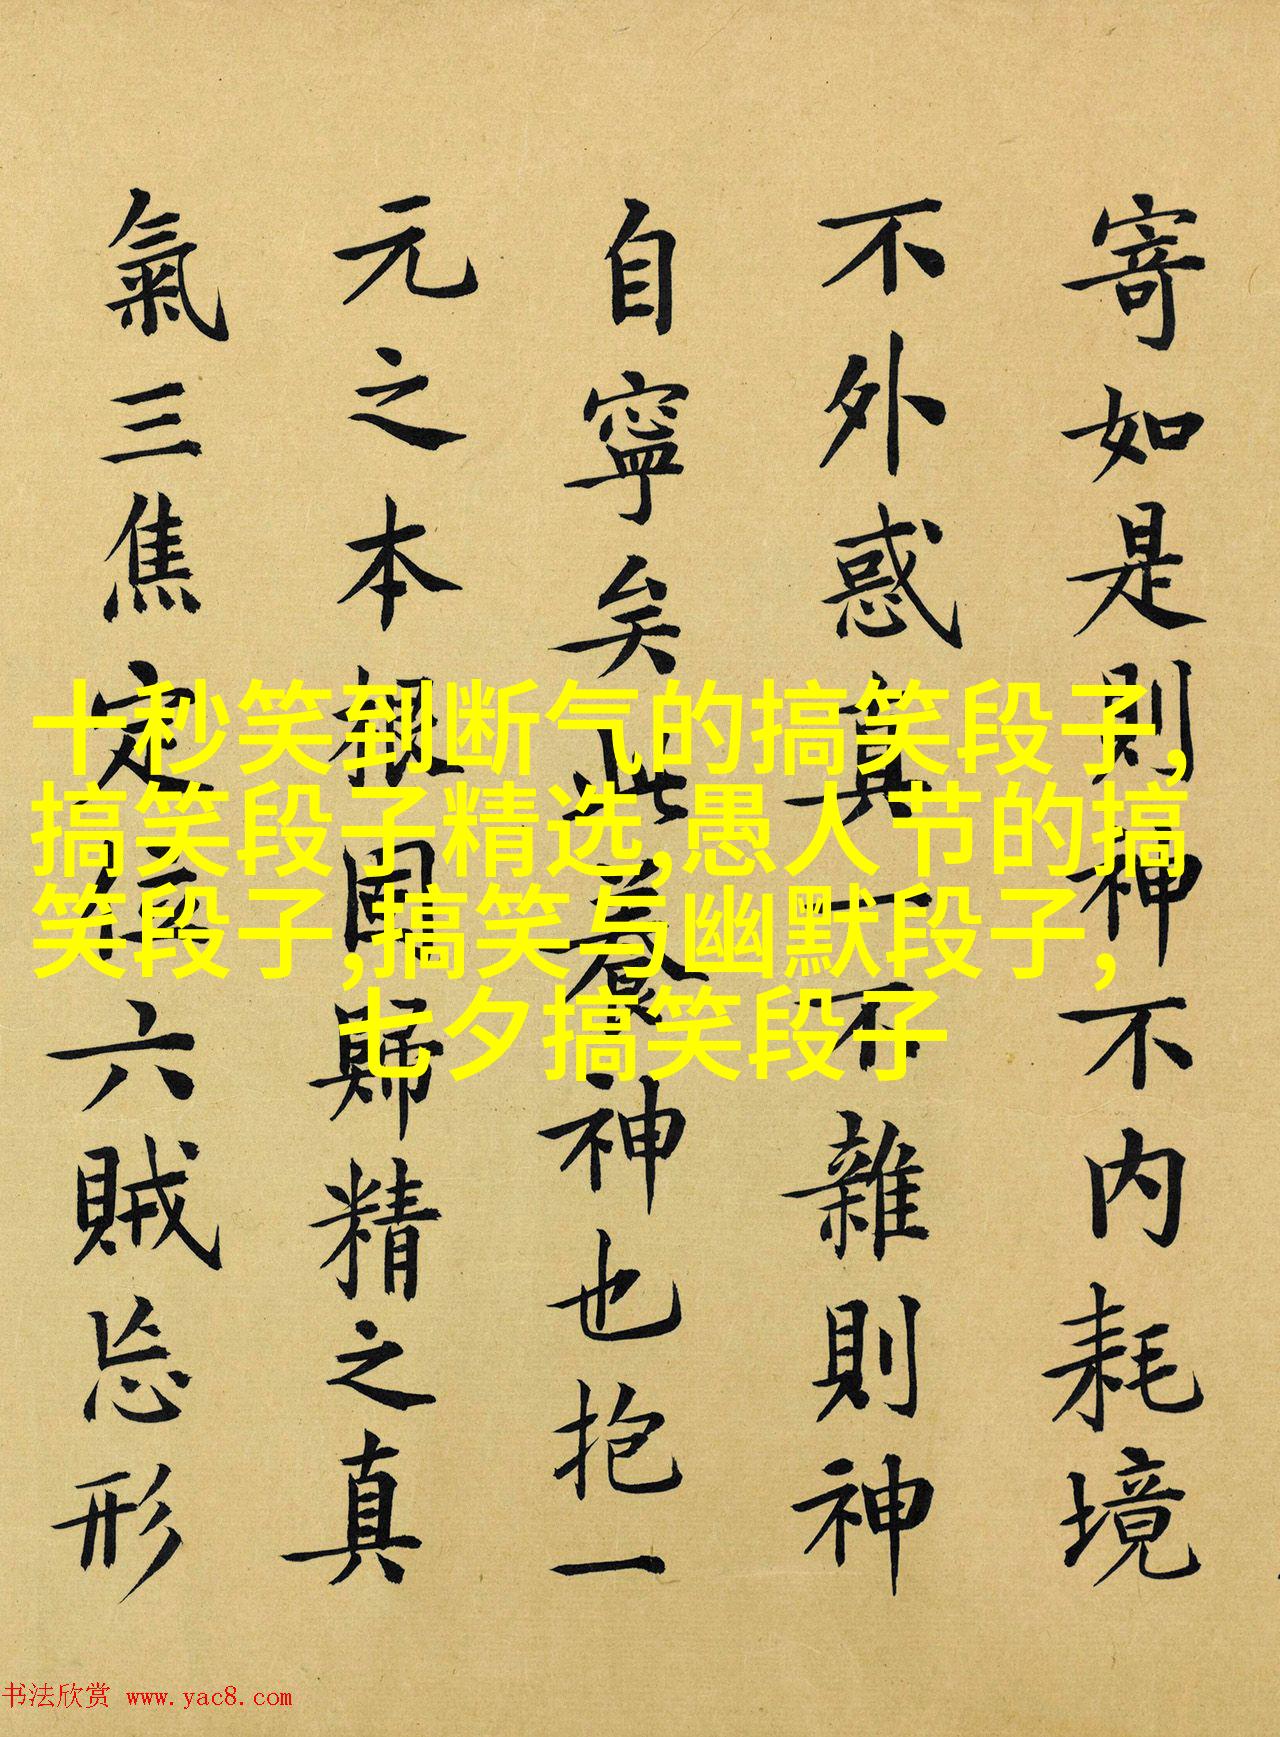 寄如是則神不内耗境
不外惑真一不雜則神
自寧矣此養神也抱一
元之本根固歸精之真
氣三焦定位六賊忘形
十秒笑到断气的搞笑段子,
搞笑段子精选,愚人节的搞
笑段子,搞笑与幽默段子,
七夕搞笑段子
书法欣赏 www.yac8.com